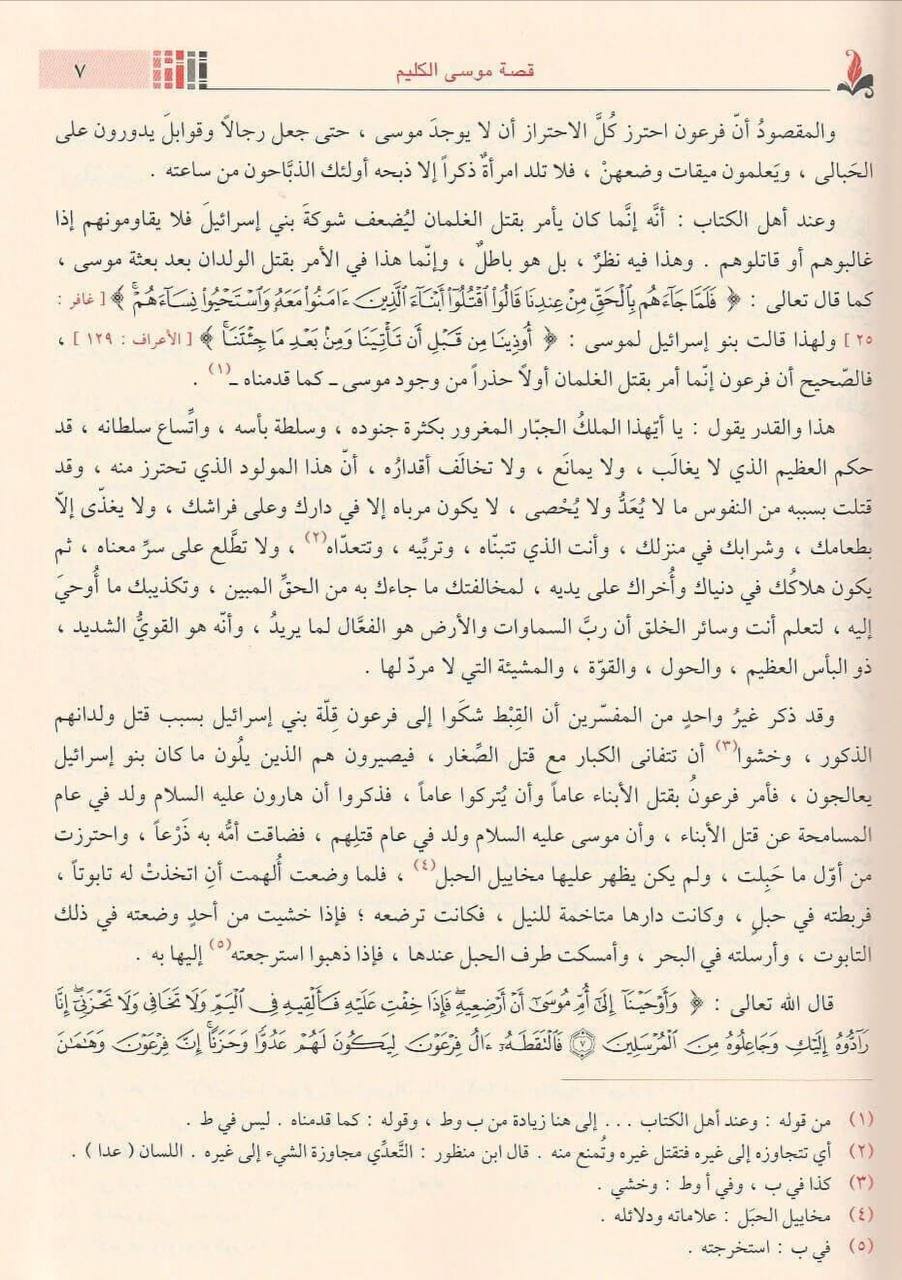 قصة موسى الكليم ٧
والمقصودُ أنّ فرعون احترز كُلَّ الاحتراز أن لا يوجدَ موسى ، حتى جعل رجالاً وقوابلَ يدورون على
الحَبالى ، ويَعلمون ميقات وضعهنْ ، فلا تلد امرأةٌ ذكراً إلا ذبحه أولئك الذبَّاحون من ساعته .
وعند أهل الكتاب : أنَّه إنَّما كان يأمر بقتل الغلمان ليُضعف شوكةَ بني إسرائيلَ فلا يقاومونهم إذا
غالبوهم أو قاتلوهم . وهذا فيه نظرٌ ، بل هو باطلٌ ، وإنّما هذا في الأمر بقتل الولدان بعد بعثة موسى ،
كما قال تعالى : ﴿ فَلَمَّا جَآءَهُم بِٱلْحَقِّ مِنْ عِندِنَا قَالُوا۟ ٱقْتُلُوٓا۟ أَبْنَآءَ ٱلَّذِينَ ءَامَنُوا۟ مَعَهُۥ وَٱسْتَحْيُوا۟ نِسَآءَهُمْ ۚ ﴾ [ غافر :
٢٥ ] ولهذا قالت بنو إسرائيل لموسى : ﴿ أُوذِينَا مِن قَبْلِ أَن تَأْتِيَنَا وَمِنۢ بَعْدِ مَا جِئْتَنَا ۚ ﴾ [ الأعراف : ١٢٩ ] ،
فالصّحيح أن فرعون إنّما أمر بقتل الغلمان أولاً حذراً من وجود موسى ـ كما قدمناه ـ(١) .
هذا والقدر يقول : يا أيّهذا الملكُ الجبّار المغرور بكثرة جنوده ، وسلطة بأسه ، واتِّساع سلطانه ، قد
حكم العظيم الذي لا يغالَب ، ولا يمانَع ، ولا تخالَف أقدارُه ، أنّ هذا المولود الذي تحترز منه ، وقد
قتلت بسببه من النفوس ما لا يُعَدُّ ولا يُحْصى ، لا يكون مرباه إلا في دارك وعلى فراشك ، ولا يغذّى إلاّ
بطعامك ، وشرابك في منزلك ، وأنت الذي تتبنّاه ، وتربِّيه ، وتتعدّاه(٢) ، ولا تطَّلع على سرِّ معناه ، ثم
يكون هلاكُك في دنياك وأُخراك على يديه ، لمخالفتك ما جاءك به من الحقِّ المبين ، وتكذيبك ما أُوحيَ
إليه ، لتعلم أنت وسائر الخلق أن ربَّ السماوات والأرض هو الفعَّال لما يريدُ ، وأنّه هو القويُّ الشديد ،
ذو البأس العظيم ، والحول ، والقوّة ، والمشيئة التي لا مردّ لها .
وقد ذكر غيرُ واحدٍ من المفسّرين أن القِبْط شكَوا إلى فرعون قِلّة بني إسرائيل بسبب قتل ولدانهم
الذكور ، وخشوا(٣) أن تتفانى الكبار مع قتل الصِّغار ، فيصيرون هم الذين يلُون ما كان بنو إسرائيل
يعالجون ، فأمر فرعونُ بقتل الأبناء عاماً وأن يُتركوا عاماً ، فذكروا أن هارون عليه السلام ولد في عام
المسامحة عن قتل الأبناء ، وأن موسى عليه السلام ولد في عام قتلِهم ، فضاقت أمُّه به ذَرْعاً ، واحترزت
من أوّل ما حَبِلت ، ولم يكن يظهر عليها مخاييل الحبل(٤) ، فلما وضعت أُلهمت أنِ اتخذتْ له تابوتاً ،
فربطته في حبلٍ ، وكانت دارها متاخمة للنيل ، فكانت ترضعه ؛ فإذا خشيت من أحدٍ وضعته في ذلك
التابوت ، وأرسلته في البحر ، وأمسكت طرف الحبل عندها ، فإذا ذهبوا استرجعته(٥) إليها به .
قال الله تعالى : ﴿ وَأَوْحَيْنَآ إِلَىٰٓ أُمِّ مُوسَىٰٓ أَنْ أَرْضِعِيهِ ۖ فَإِذَا خِفْتِ عَلَيْهِ فَأَلْقِيهِ فِى ٱلْيَمِّ وَلَا تَخَافِى وَلَا تَحْزَنِىٓ ۖ إِنَّا
رَآدُّوهُ إِلَيْكِ وَجَاعِلُوهُ مِنَ ٱلْمُرْسَلِينَ ۝٧ فَٱلْتَقَطَهُۥٓ ءَالُ فِرْعَوْنَ لِيَكُونَ لَهُمْ عَدُوًّا وَحَزَنًا ۗ إِنَّ فِرْعَوْنَ وَهَٰمَٰنَ
(١) من قوله : وعند أهل الكتاب ... إلى هنا زيادة من ب وط ، وقوله : كما قدمناه . ليس في ط .
(٢) أي تتجاوزه إلى غيره فتقتل غيره وتُمنع منه . قال ابن منظور : التَّعدِّي مجاوزة الشيء إلى غيره . اللسان ( عدا ) .
(٣) كذا في ب ، وفي أ وط : وخشي .
(٤) مخاييل الحبَل : علاماته ودلائله .
(٥) في ب : استخرجته .